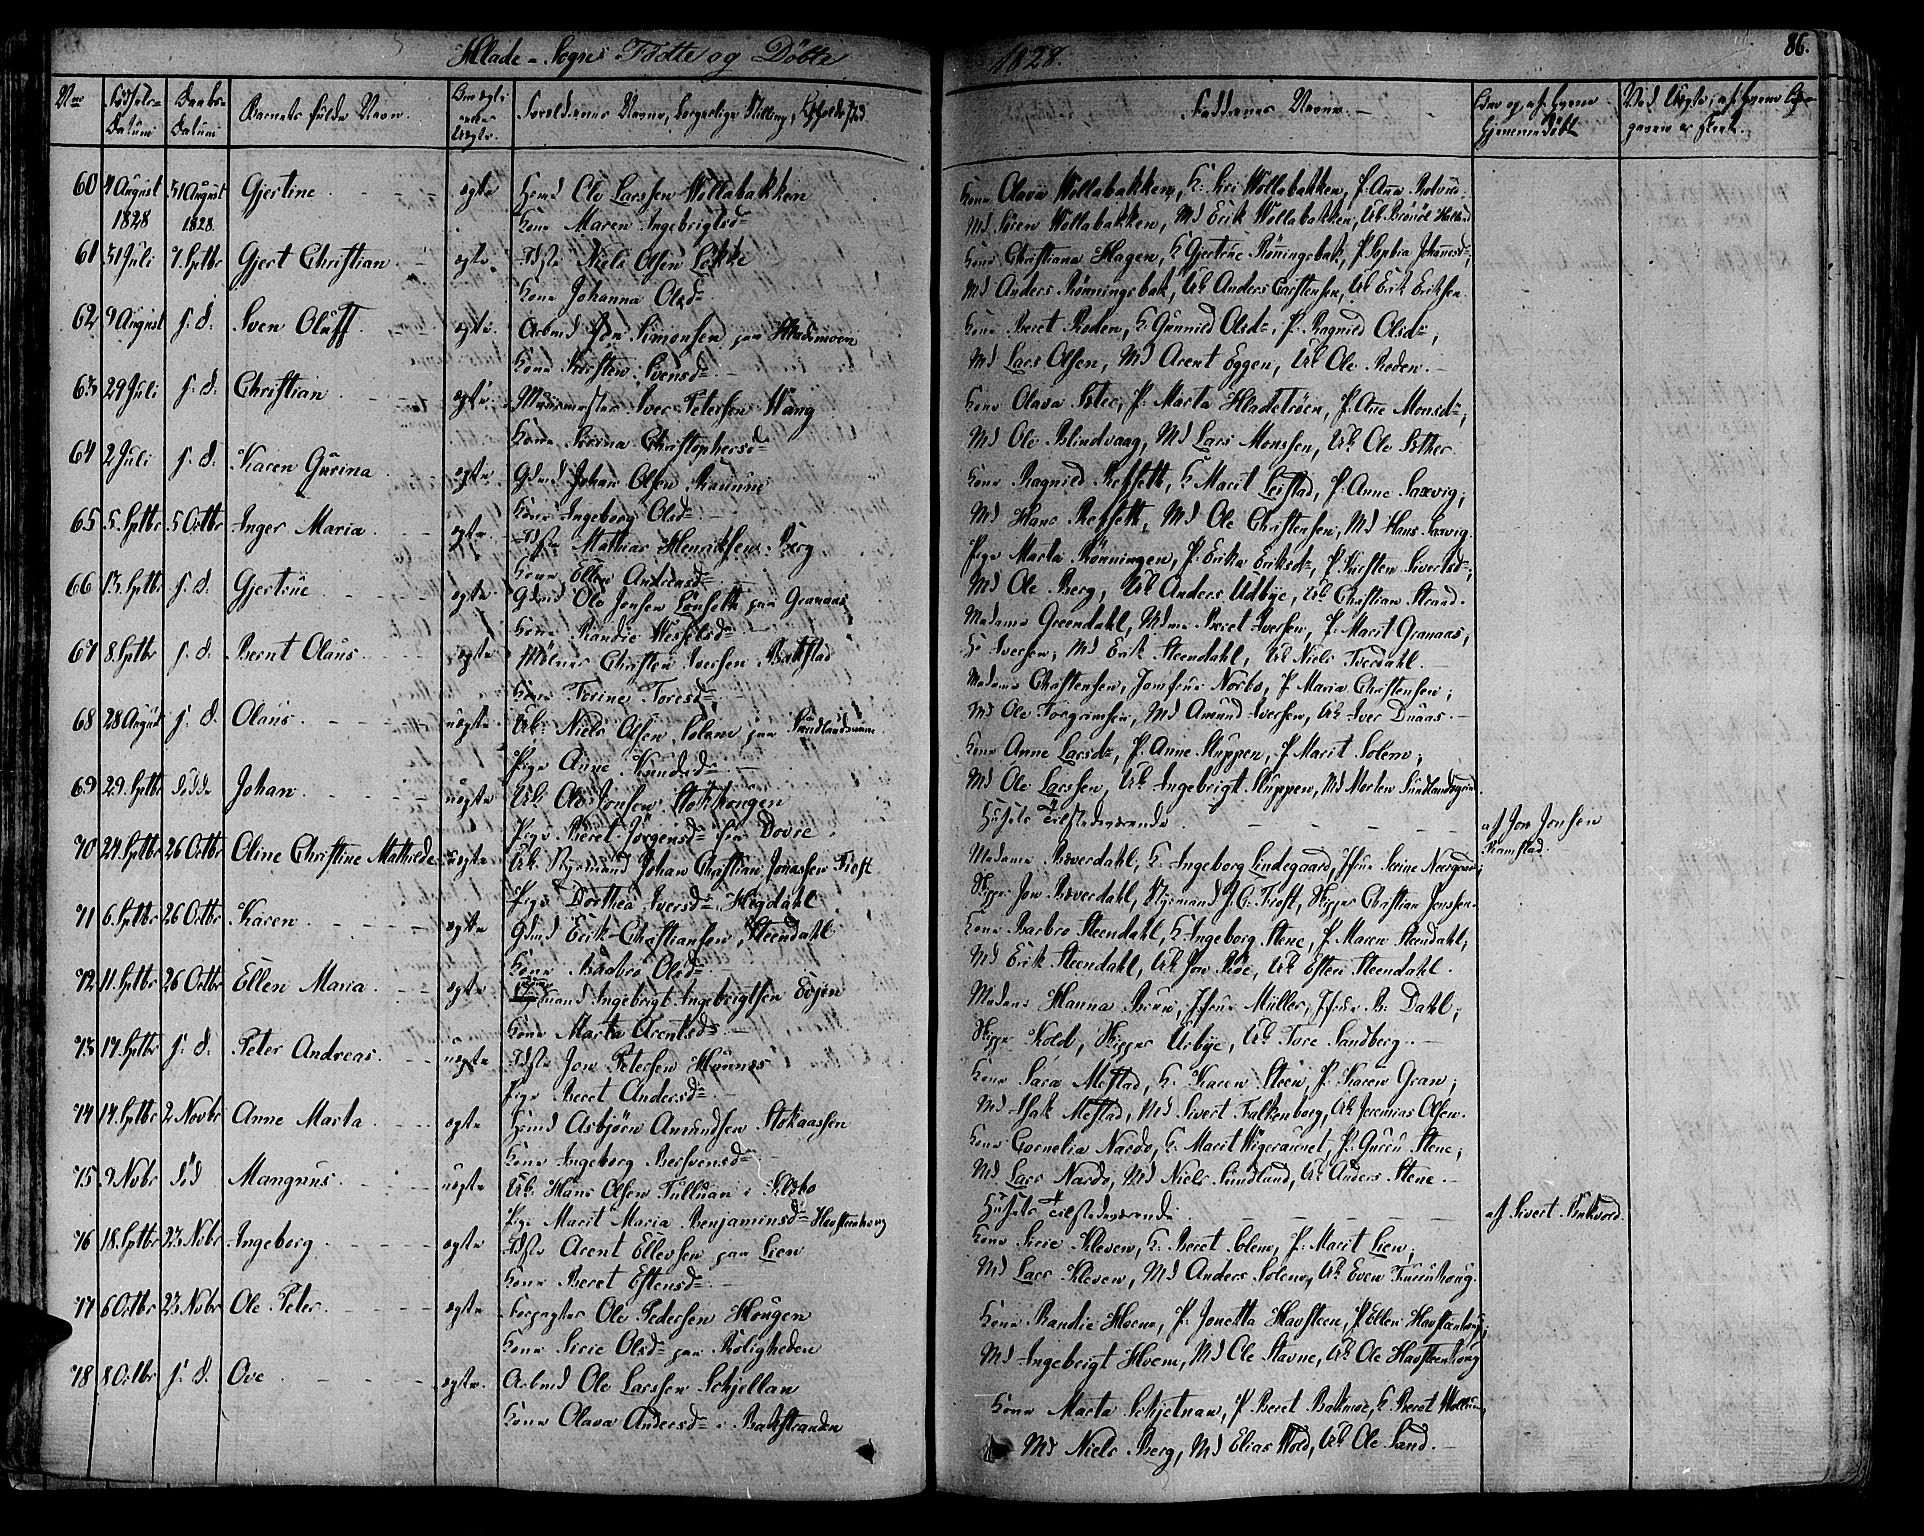 Hlade-Sogns Födte og Döbte
1828.
86.
Nr
Födsels-Datum
Daabs-Datum
Barnets fulde Navn.
Forældrenes Navne, borgerlige Stilling,
Faddernes Navne.
60 4 August 1828 31 August 1828 Gjertine ægte
Ole Larssen Wollabakken
Kone Maren Ingebrigtsd
Kone Olava Wollabakken, K. Siri Wollabakken, P. Ane
Md Sören Wollabakken, Md Erik Wollabakken, Uk.
61 31 Juli 7 Septbr Gjert Christian ægte
Niels Olsen Lökke
Kone Johanna Olsd
Kone Christiana Hagen, K Gjertrue Röningsbak, P. Sophia Johannesd,
Md Anders Rönningsbak, Uk Anders Carstensen, Uk Erik Eriksen.
62 9 August s. d. Sven Oluff ægte
Arbmd Jon Simonsen paa Hlademoen
Kone Kirsten Svensd
Kone Beret Roden, K Gunnild Olsd, P. Ragnild Olsd,
Md Lars Olsen, Md Arent Eggen, Uk Ole Roden.
63 29 Juli s. d. Christian ægte
Iver Petersen Wang
Kone Christophersd
Kone Olava, P. Marta Hladetröen, P. Ane Monsd,
Md Ole Blindvaag, Md Lars Monssen, Uk Ole
64 2 Juli s. d. Karen Gurina ægte
Gdmd Johan Olsen
Kone Ingeborg Olsd
Kone Ragnild Refseth, K Marit Leistad, P. Anne Saxvig,
Md Hans Refseth, Md Ole Christensen, Md Hans Saxvig
65 5 Septbr 5 Octbr Inger Maria ægte
Mathias Henriksen Berg
Kone Ellen Andreasd
Pige Marta Rönningen, P. Erika Eriksd, P. Kirsten Sivertsd,
Md Ole Berg, Uk Anders Udbye, Uk Christian Strand.
66 13 Septbr s. d. Gjertrue ægte
Gdmd Ole Jonsen Lönseth paa Granaas
Kone Randie Wesselsd
Madame Greendahl, Mdme Beret Iversen, P. Marit Granaas,
H. Iversen, Md Erik Steendahl, Uk Niels Tverdahl.
67 8 Septbr s. d. Bernt Olaus ægte
Christen Iversen Bakstad
Kone Torine Toresd
Madame Christensen, Jomfrue Norbo, P Maria Christensen,
Md Ole Torgrimsen, Md Amund Iversen, Uk Iver Duaas.
68 28 August s. d. Olaus uægte
Uk. Niels Olsen Solem paa
Pige Anne Knudsd
Kone Anne Larsd, P. Anne Sluppen, P. Marit Solem,
Md Ole Larssen, Uk. Ingebrigt Sluppen, Md Morten
69 29 Septbr Johan uægte
Uk. Ole Jonsen Stokhougen
Pige Beret Jörgensd fra Dovre
Husets Tilstedeværende
af Jon Jonsen Ramstad
70 24 Septbr 26 Octbr Oline Christine Mathilde uægte
Uk. Styrmand Johan Christian Jonassen Frost
Pige Dorthea Iversd Hegdahl
Madame Bæverdahl, K. Ingeborg Lindegaard,
Skipper Jon Bæverdahl, Styrmand J. C. Frost, Skipper Christian Jenssen
71 6 Septbr 26 Octbr Karen ægte
Gdmd Erik Christiansen Steendahl
Kone Barbro Olsd
Kone Barbro Steendahl, K. Ingeborg Stene, P. Maren Steendahl,
Md Erik Steendahl, Uk Jon Röe, Uk Esten Steendahl.
72 11 Septbr 26 Octbr Ellen Maria ægte
Ingebrigt Ingebrigtsen Evjen
Kone Marta Arentsd
Madame Hanna Bruun, Jfrue Müller, Jfrue B. Dahl,
Skipper Kold, Skipper Ursbye, Uk Tore Sandberg.
73 17 Septbr s. d. Peter Andreas uægte
Jon Petersen
Pige Beret Andersd
Kone Sara Mestad, K. Karen Steen, P. Karen Gran,
Md Isak Mestad, Md Sivert Falkenborg, Uk Jeremias Olsen.
74 14 Septbr 2 Novbr Anne Marta ægte
Asbjörn Amundsen Stokaassen
Kone Ingeborg Bersvensd
Kone Cornelia Nardo, K. Marit, P. Guru Stene,
Md Lars Nardo, Md Niels Sundland, Uk Anders Stene.
75 9 Novbr Mangnus uægte
Uk. Hans Olsen Tulluan i Selbo
Pige Marit Maria Benjaminsd Havsteenhoug
Husets Tilstedeværende
af Sivert
76 18 Septbr 23 Novbr Ingeborg ægte
Arent Ellevsen paa Lien
Kone Beret Estensd
Kone Sirie Kleven, K. Beret Solem, P. Marit Lien,
Md Lars Kleven, Md Anders Solem, Uk Even
77 6 Octbr 23 Novbr Ole Peter ægte
Forpagter Ole Pedersen Hougen
Kone Sirie Olsd paa Roligheden
Kone Randie Hoem, P. Jonetta Havsteen, P. Ellen Havsteenhoug,
Md Ingebrigt Hoem, Md Ole Stavne, Uk Ole Havsteenhoug
78 8 Octbr s. d. Ove ægte
Arbmd Ole Larssen Schjellan
Kone Olava Andersd i Bakstranden
Kone Marta Schjetnan, P. Beret Bakmoe, K. Beret
Md Niels Berg, Md Elias Wold, Uk Ole Sand.